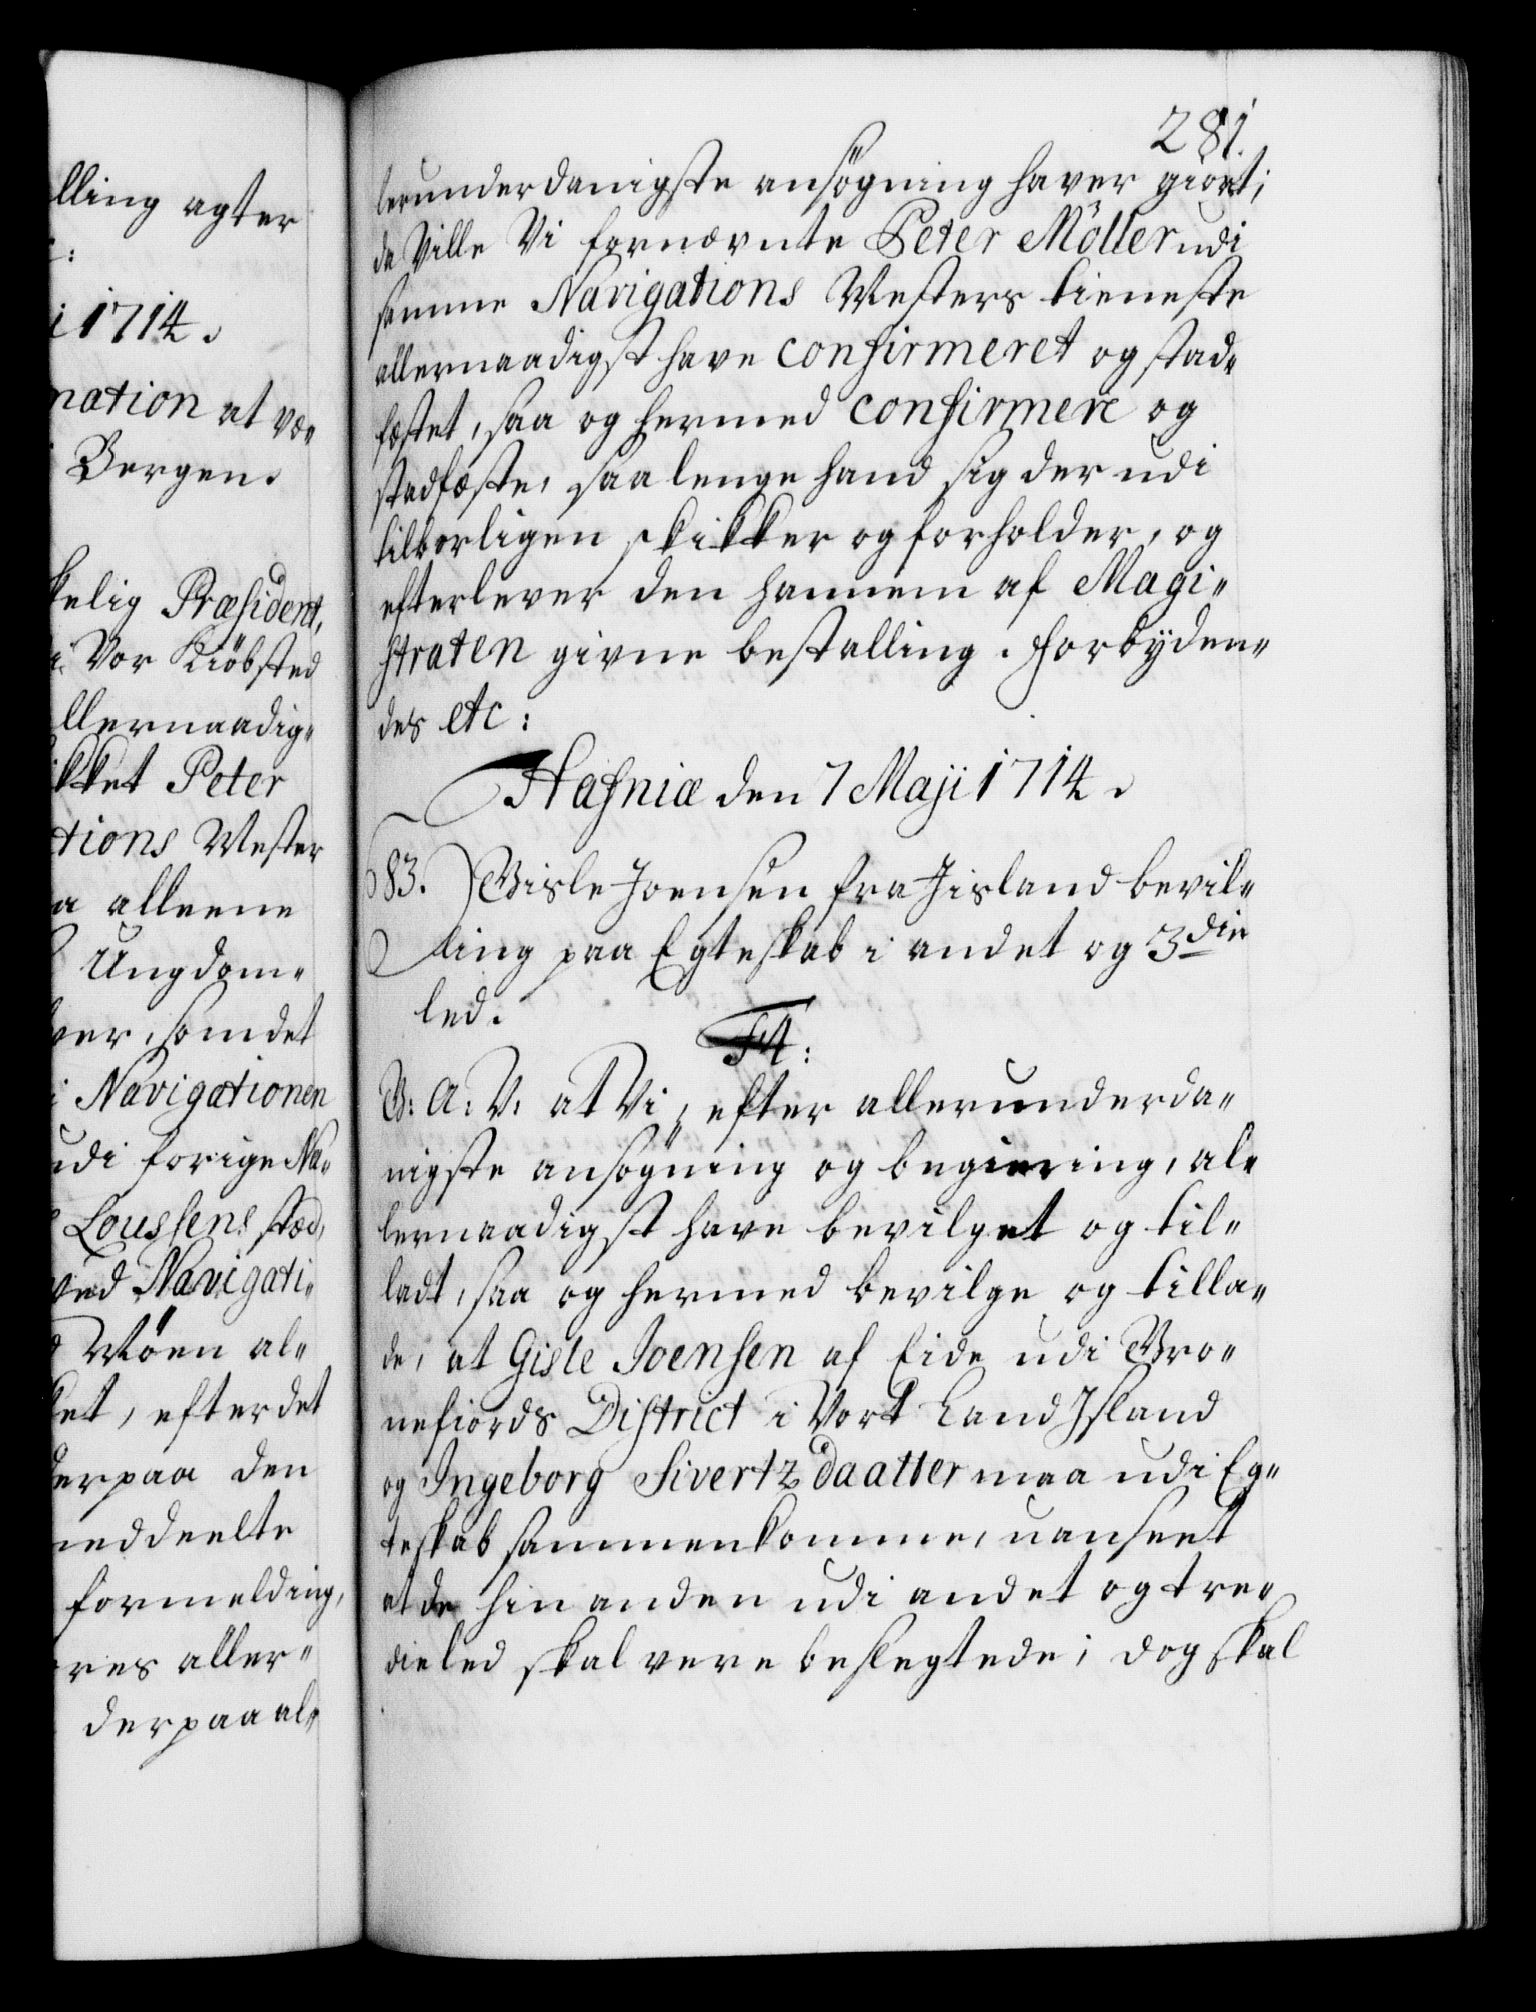 lling agter
i 1714.
mation at væ„
Bergen.
kelig Præsident,
Vor Kiöbsted
llernaadig„
ikket Peter
ations Mester
a alleene
Ungdom„
ver, som det
i Navigationen
udi forige Na„
Loussens stæd,
ved Navigati„
Möen al„
ket, efter det
derpaa den
meddeelte
formelding,
res aller„
derpaa al„
281.
lerunderdanigste ansögning haver giort;
da Ville Vi fornevnte Peter Möller udi
samme Navigations Mesters tieneste
allernaadigst have confirmeret og stad„
fæstet, saa og hermed confirmere og
stadfæste, saa lenge hand sig der udi
tilbørligen skikker og forholder, og
efterlever den hannem af Magi„
straten givne bestalling. Forbyden„
des etc:
Hafniæ den 7 Maji 1714.
83. Gisle Joensen fra Jisland bevil„
ling paa Egteskab i andet og 3die
led.
F4:
G: A: V: at Vi, efter allerunderda„
nigste ansögning og begiering, al„
lernaadigst have bevilget og til„
ladt, saa og hermed bevilge og tilla„
de, at Gisle Joensen af Eide udi Gro„
nefiords District i Vort Land Jsland
og Jngeborg Sivertz daatter maa udi Eg„
teskab sammenkomme, uanseet
at de hin anden udi andet og tre„
die led skal vere beslegtede; dog skal